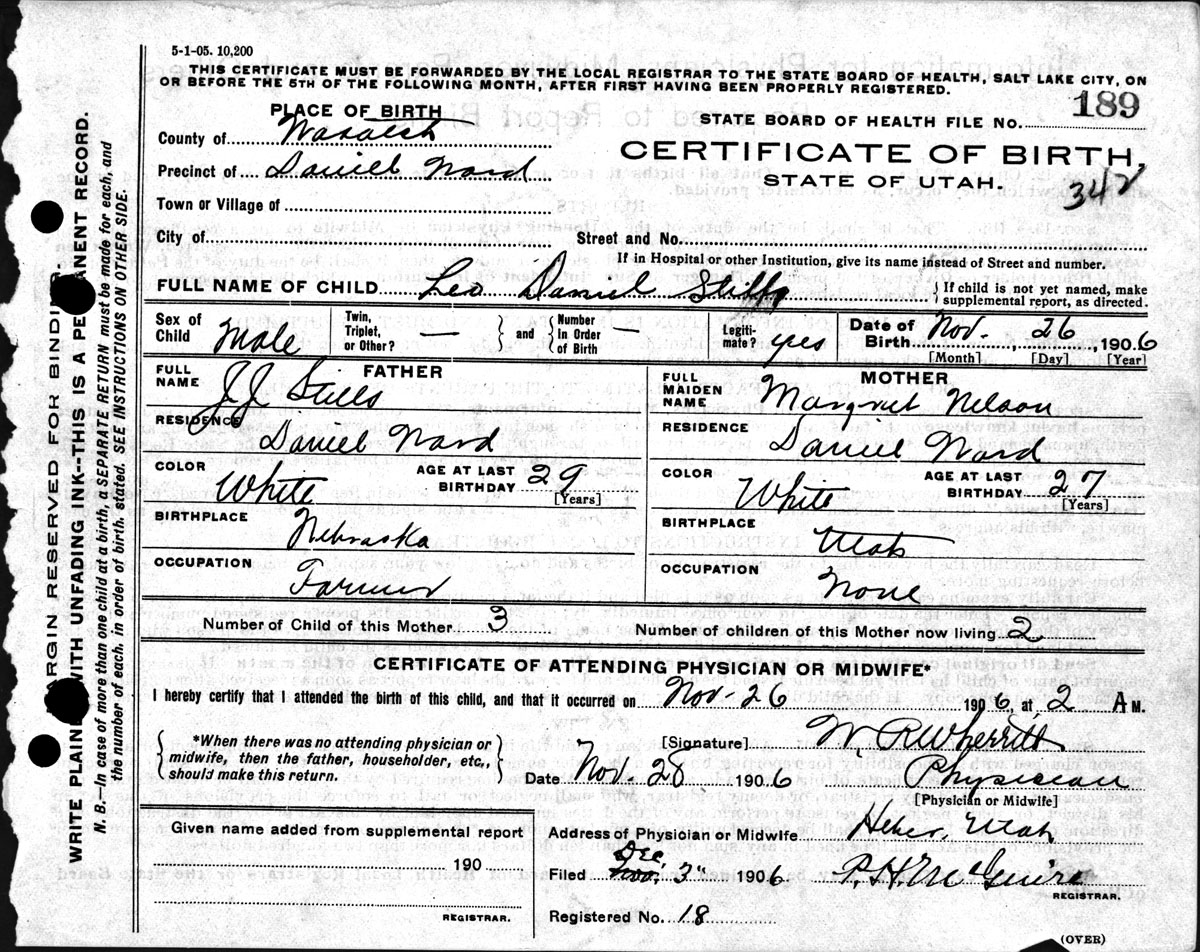 5-1-05. 10,200
THIS CERTIFICATE MUST BE FORWARDED BY THE LOCAL REGISTRAR TO THE STATE BOARD OF HEALTH, SALT LAKE CITY, ON
OR BEFORE THE 5TH OF THE FOLLOWING MONTH, AFTER FIRST HAVING BEEN PROPERLY REGISTERED.
PLACE OF BIRTH
STATE BOARD OF HEALTH FILE NO. 189
County of Wasatch
Precinct of Daniell Ward
CERTIFICATE OF BIRTH,
STATE OF UTAH.
342
Town or Village of
City of Street and No.
If in Hospital or other Institution, give its name instead of Street and number.
FULL NAME OF CHILD Leo Daniel Stills
If child is not yet named, make
supplemental report, as directed.
Sex of Child Male
Twin, Triplet, or Other? — and Number In Order of Birth —
Legitimate? yes
Date of Birth Nov. 26, 1906
[Month] [Day] [Year]
FATHER
FULL NAME J J Stills
RESIDENCE Daniel Ward
COLOR White AGE AT LAST BIRTHDAY 29
[Years]
BIRTHPLACE Nebraska
OCCUPATION Farmer
MOTHER
FULL MAIDEN NAME Margret Nelson
RESIDENCE Daniel Ward
COLOR White AGE AT LAST BIRTHDAY 27
[Years]
BIRTHPLACE Utah
OCCUPATION None
Number of Child of this Mother 3 Number of children of this Mother now living 2
CERTIFICATE OF ATTENDING PHYSICIAN OR MIDWIFE*
I hereby certify that I attended the birth of this child, and that it occurred on Nov-26 1906, at 2 A M.
*When there was no attending physician or
midwife, then the father, householder, etc.,
should make this return.
[Signature] W. R Wherritt
Date Nov. 28 1906 Physician
[Physician or Midwife]
Given name added from supplemental report
190
REGISTRAR.
Address of Physician or Midwife Heber, Utah
Filed Dec. 3" 1906 P. H. McGuire
REGISTRAR.
Registered No. 18
(OVER)
MARGIN RESERVED FOR BINDING
WRITE PLAINLY WITH UNFADING INK--THIS IS A PERMANENT RECORD.
N. B.—In case of more than one child at a birth, a SEPARATE RETURN must be made for each, and
the number of each, in order of birth, stated. SEE INSTRUCTIONS ON OTHER SIDE.